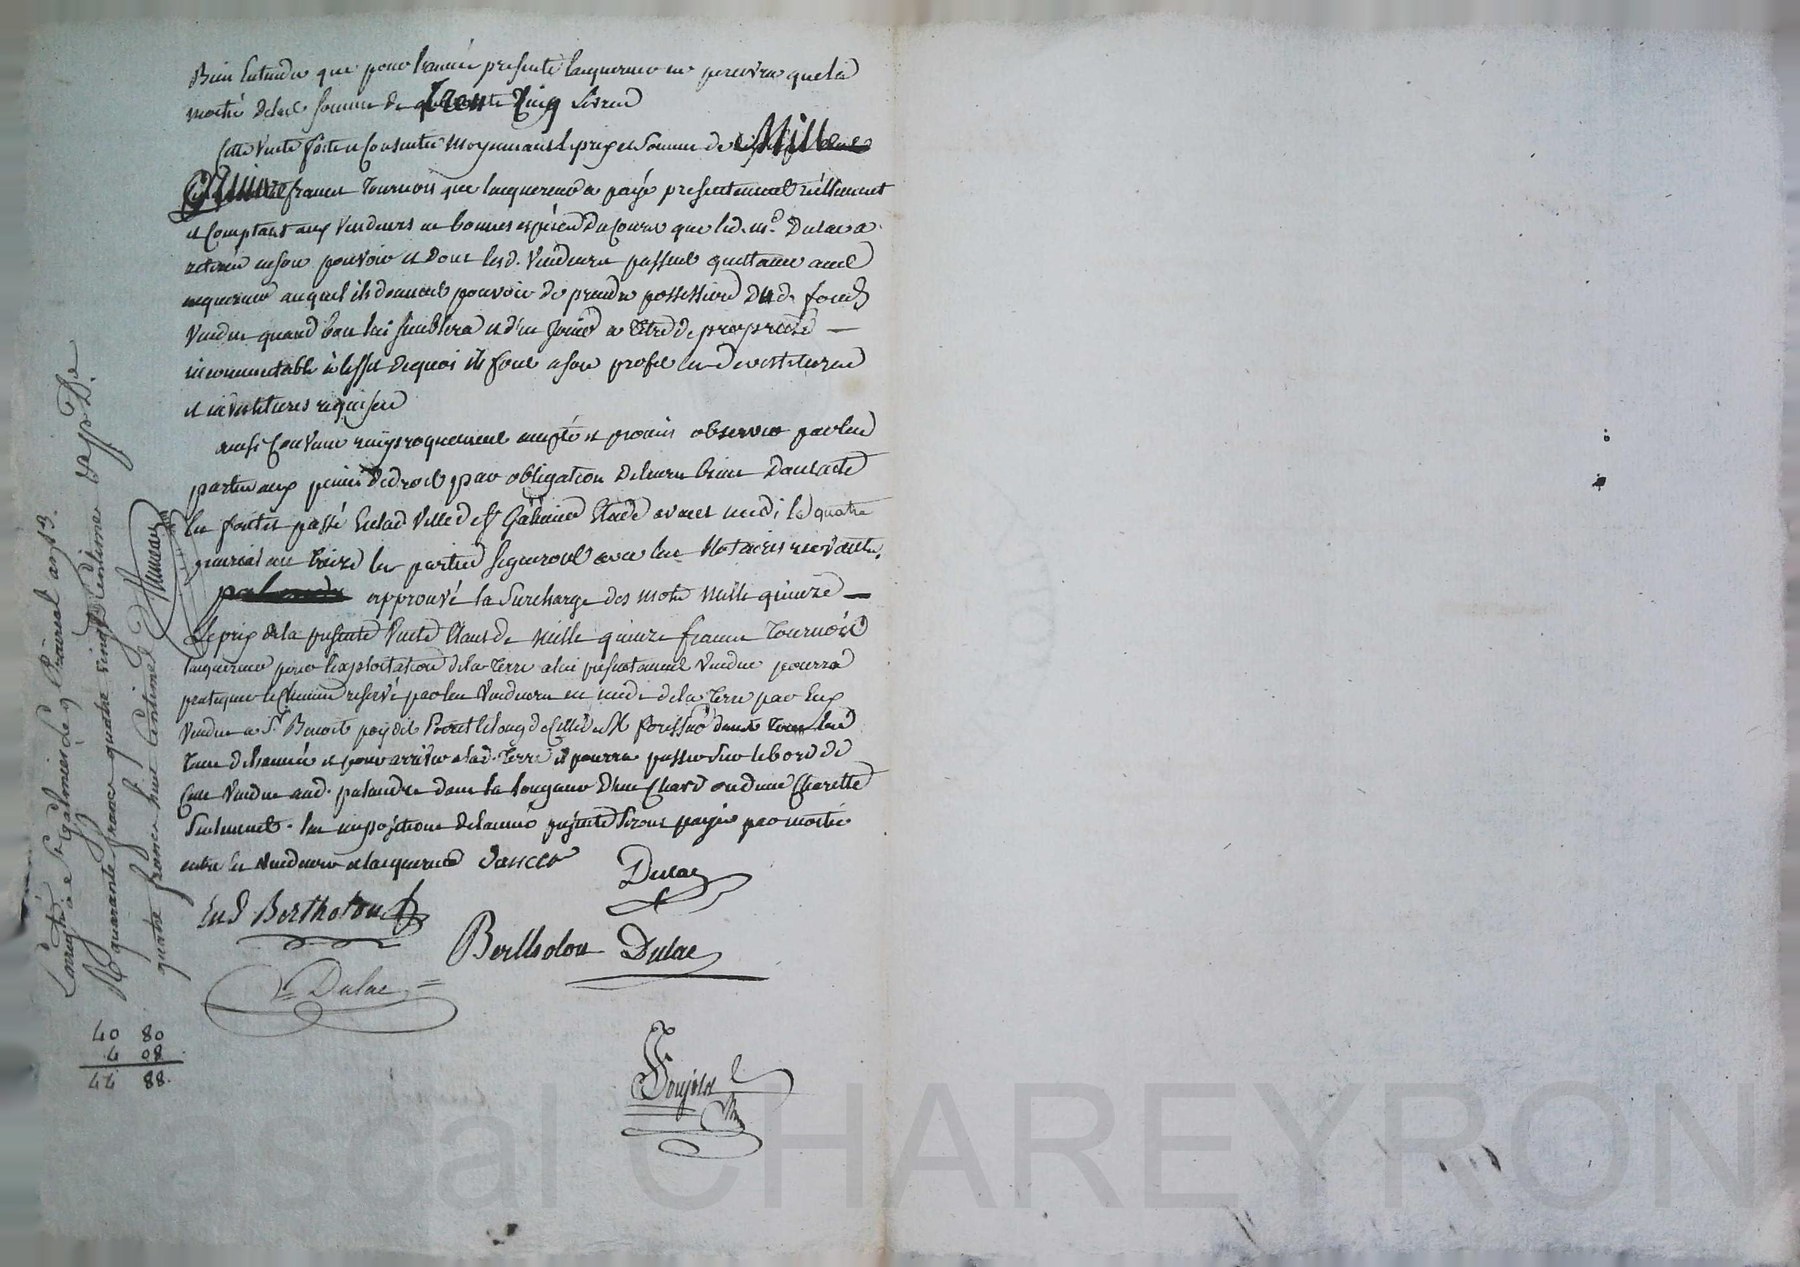 Bien Entendu que pour l'année presente l'acquereur ne percevra que la
moitié de lad. somme de trente Cinq livres
Cette Vente faite et Consentie moyennant le prix et Somme de Mille
Quinze francs Tournois que l'acquereur a payé presentement réellement
et Comptant aux Vendeurs en bonnes espèces Du Cours que led. me. Dulac a
retiré en son pouvoir et Dont lesd. Vendeurs passent quittance aud
acquereur auquel ils donnent pouvoir de prendre possession Dud. fonds
Vendu quand bon lui semblera et d'en jouir a titre de proprieté —
incommutable à l'effet de quoi ils font a son profit les devestitures
et investitures requises
ainsi Convenu reciproquement accepté et promis observer par les
parties aux peines de droit par obligation de leurs biens Dont acte
lu fait et passé En lad. Ville de St Galmier Etude avant midi le quatre
prairial an treize les parties signeront avec les Notaires recevants.
approuvé la Surcharge des mots Mille quinze —
le prix de la presente Vente Etant de Mille quinze francs Tournois
l'acquereur pour l'exploitation de la terre a lui presentement Vendue pourra
pratiquer le Chemin reservé par les Vendeurs en midi de la terre par Eux
Vendue a Sr. Benoit
tems de l'année et pour arriver a lad. Terre il pourra passer Sur le bord de
Celle Vendue aud. palandre dans la longueur D'un Chard ou d'une Charette
Seulement. les impositions de l'année presente Seront payés par moitié
entre les Vendeurs et l'acquereur
Dulac
End Bertholon
Bertholon Dulac
Dulac
Enregistré a St galmier le 9 Prairial an 13.
R quarante francs quatre vingt Centimes
quatre francs huit Centimes
40 80
4 08
44 88.
Pascal CHAREYRON